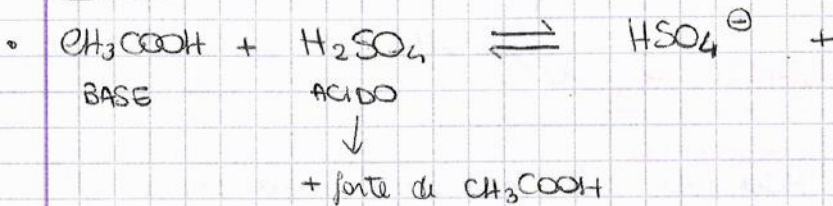 • CH₃COOH + H₂SO₄ ⇌ HSO₄⊖ +
BASE ACIDO
↓
+ forte di CH₃COOH